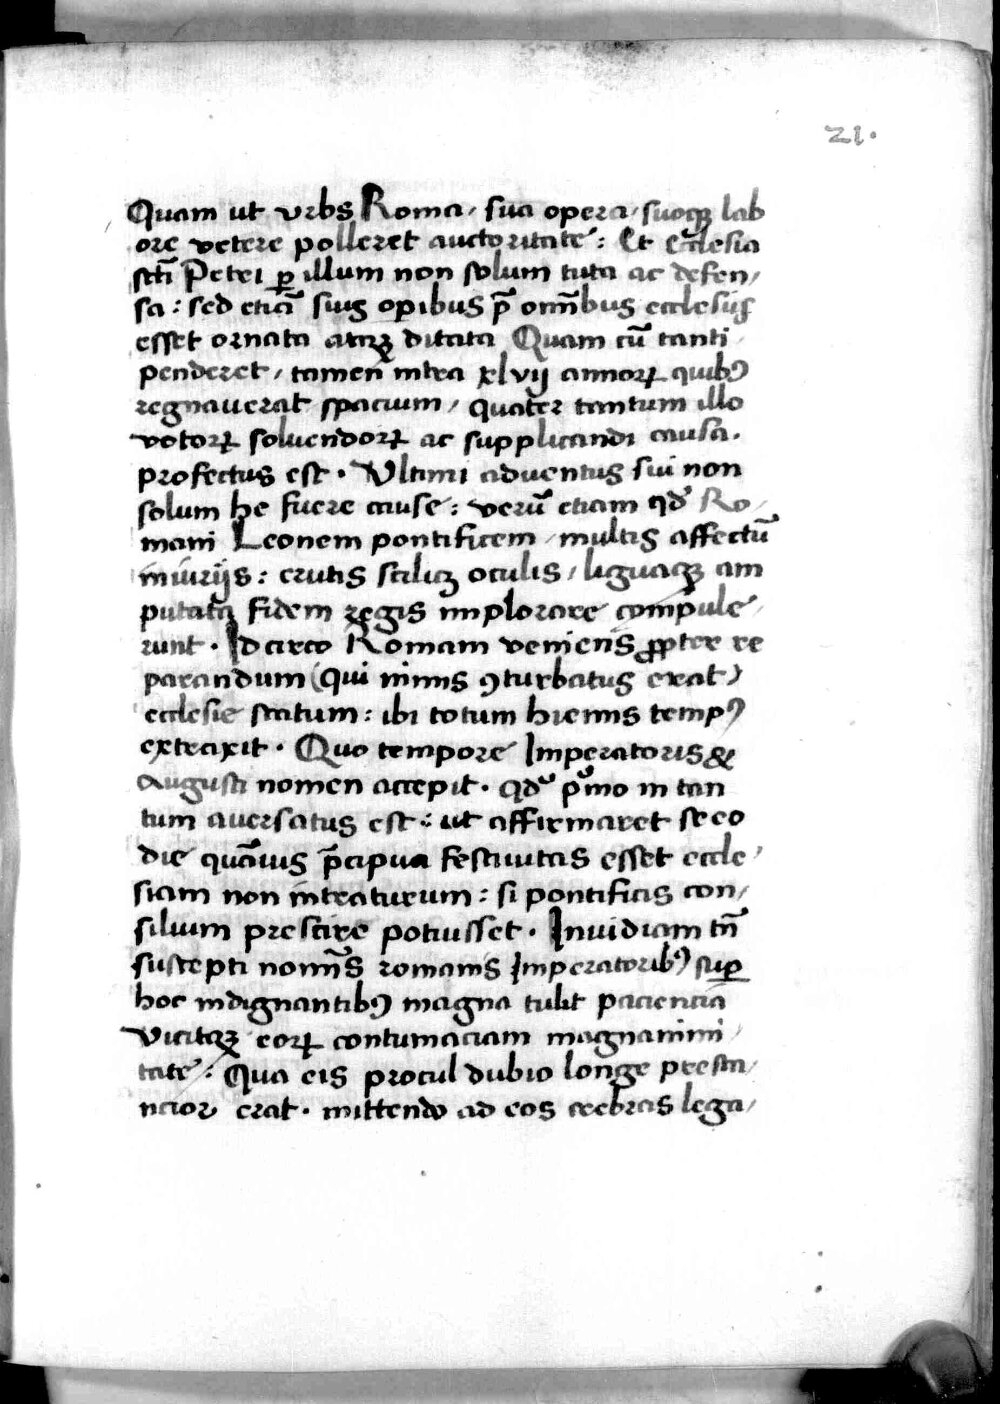 21.
Quam ut vrbs Roma, sua opera, suoqꝫ lab
ore vetere polleret auctoritate: Et Ecclesia
scti̅ Petri ꝑ illum non solum tuta ac defen,
sa: sed etia̅ suis opibus p̅ om̅ibus ecclesijs
esset ornata atqꝫ ditata Quam cu̅ tanti
penderet, tamen intra xlvij annorꝝ quibꝰ
regnauerat spacium, quater tantum illo
votorꝝ soluendorꝝ ac supplicandi causa.
profectus est. Ultimi aduentus sui non
solum he fuere cause: veru̅ etiam qd̕ Ro,
mani Leonem pontificem, multis affectu̅
iniurijs: erutis scilicꝫ oculis, liguaqꝫ am
putata̅ fidem regis implorare compule,
runt. Idcirco Romam veniens ꝓpter re
parandum (qui nimis ꝯturbatus erat)
ecclesie statum: ibi totum hiemis tempꝰ
extraxit. Quo tempore Imperatoris &
Augusti nomen accepit. qd̕ pͥmo in tan
tum auersatus est: ut affirmaret se eo
die qua̅uis p̅cipua festiuitas esset eccle,
siam non intraturum: si pontificis con,
silium prescire potuisset. Inuidiam tn̅
suscepti nomi̅s romanis Imperatoribꝰ suꝑ
hoc indignantibꝰ magna tulit paciencia
vicitqꝫ eorꝝ contumaciam magnanimi,
tate: Qua eis procul dubio longe presta,
ncior erat. mittendo ad eos crebras lega,